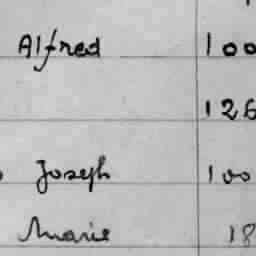 Alfred 100
126
Joseph 100
Marie 18